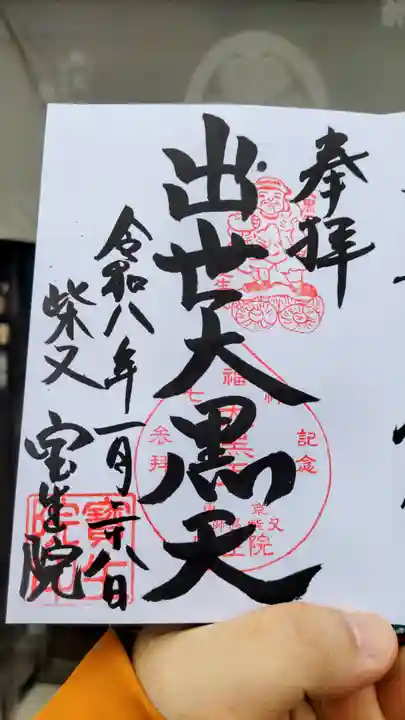 奉拝
出世大黒天
令和八年一月二十八日
柴又
宝生院
七福神
参拝
記念